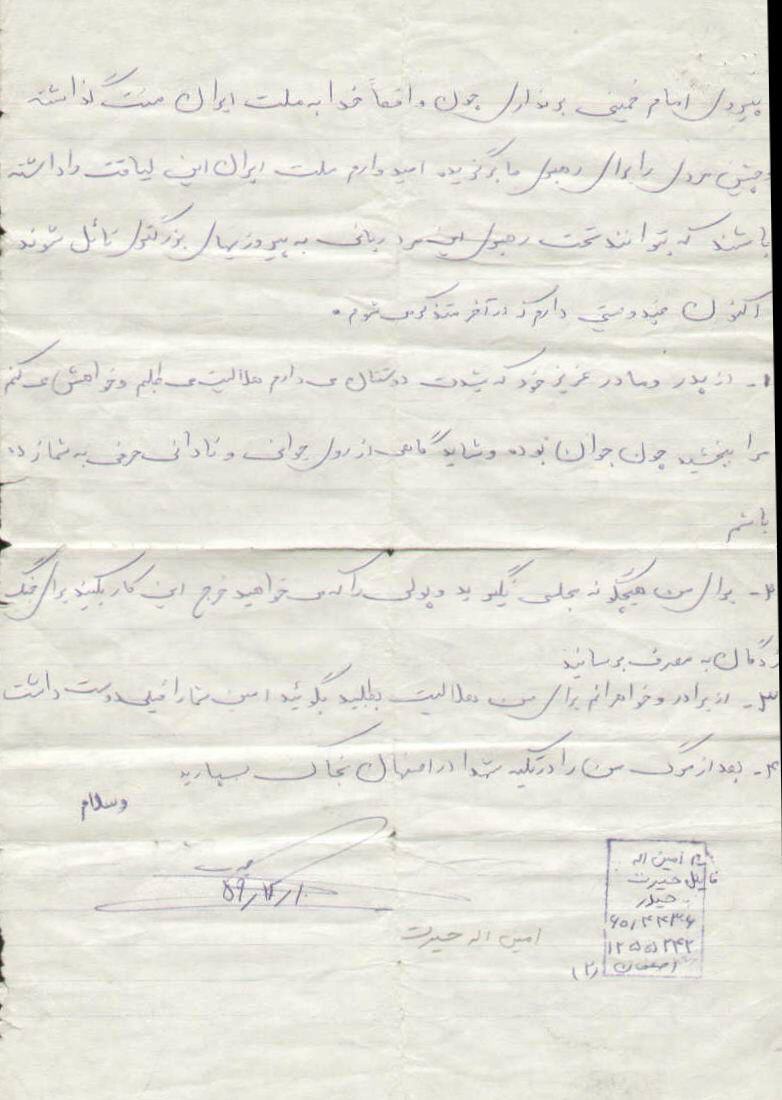 پیروی امام خمینی برندارید چون واقعاً خدا به ملت ایران منت گذاشته
و چنین مردی را برای رهبری ما برگزیده امیدوارم ملت ایران این لیاقت را داشته
باشند که بتوانند تحت رهبری این مرد ربانی به پیروزیهای بزرگتری نائل شوند
اکنون چند وصیتی دارم که در آخر متذکر می شوم .
۱- از پدر و مادر عزیز خود که بشدت دوستشان می دارم حلالیت می طلبم و خواهش می کنم
مرا ببخشید چون جوان بوده و شاید گاهی از روی جوانی و نادانی حرفی به شما زده
باشم
۲- برای من هیچگونه مجلسی نگیرید و پولی را که می خواهید خرج این کار بکنید برای جنگ
زدگان به مصرف برسانید
۳- از برادر و خواهرانم برای من حلالیت بطلبید بگوئید امین شما را خیلی دوست داشت
۴- بعد از مرگ من را در تکیه شهدا در اصفهان بخاک بسپارید
وسلام
۵۹/۱۲/۱۰
امین اله حیرت
امین اله
حیرت
حیدر
اصفهان (۲)